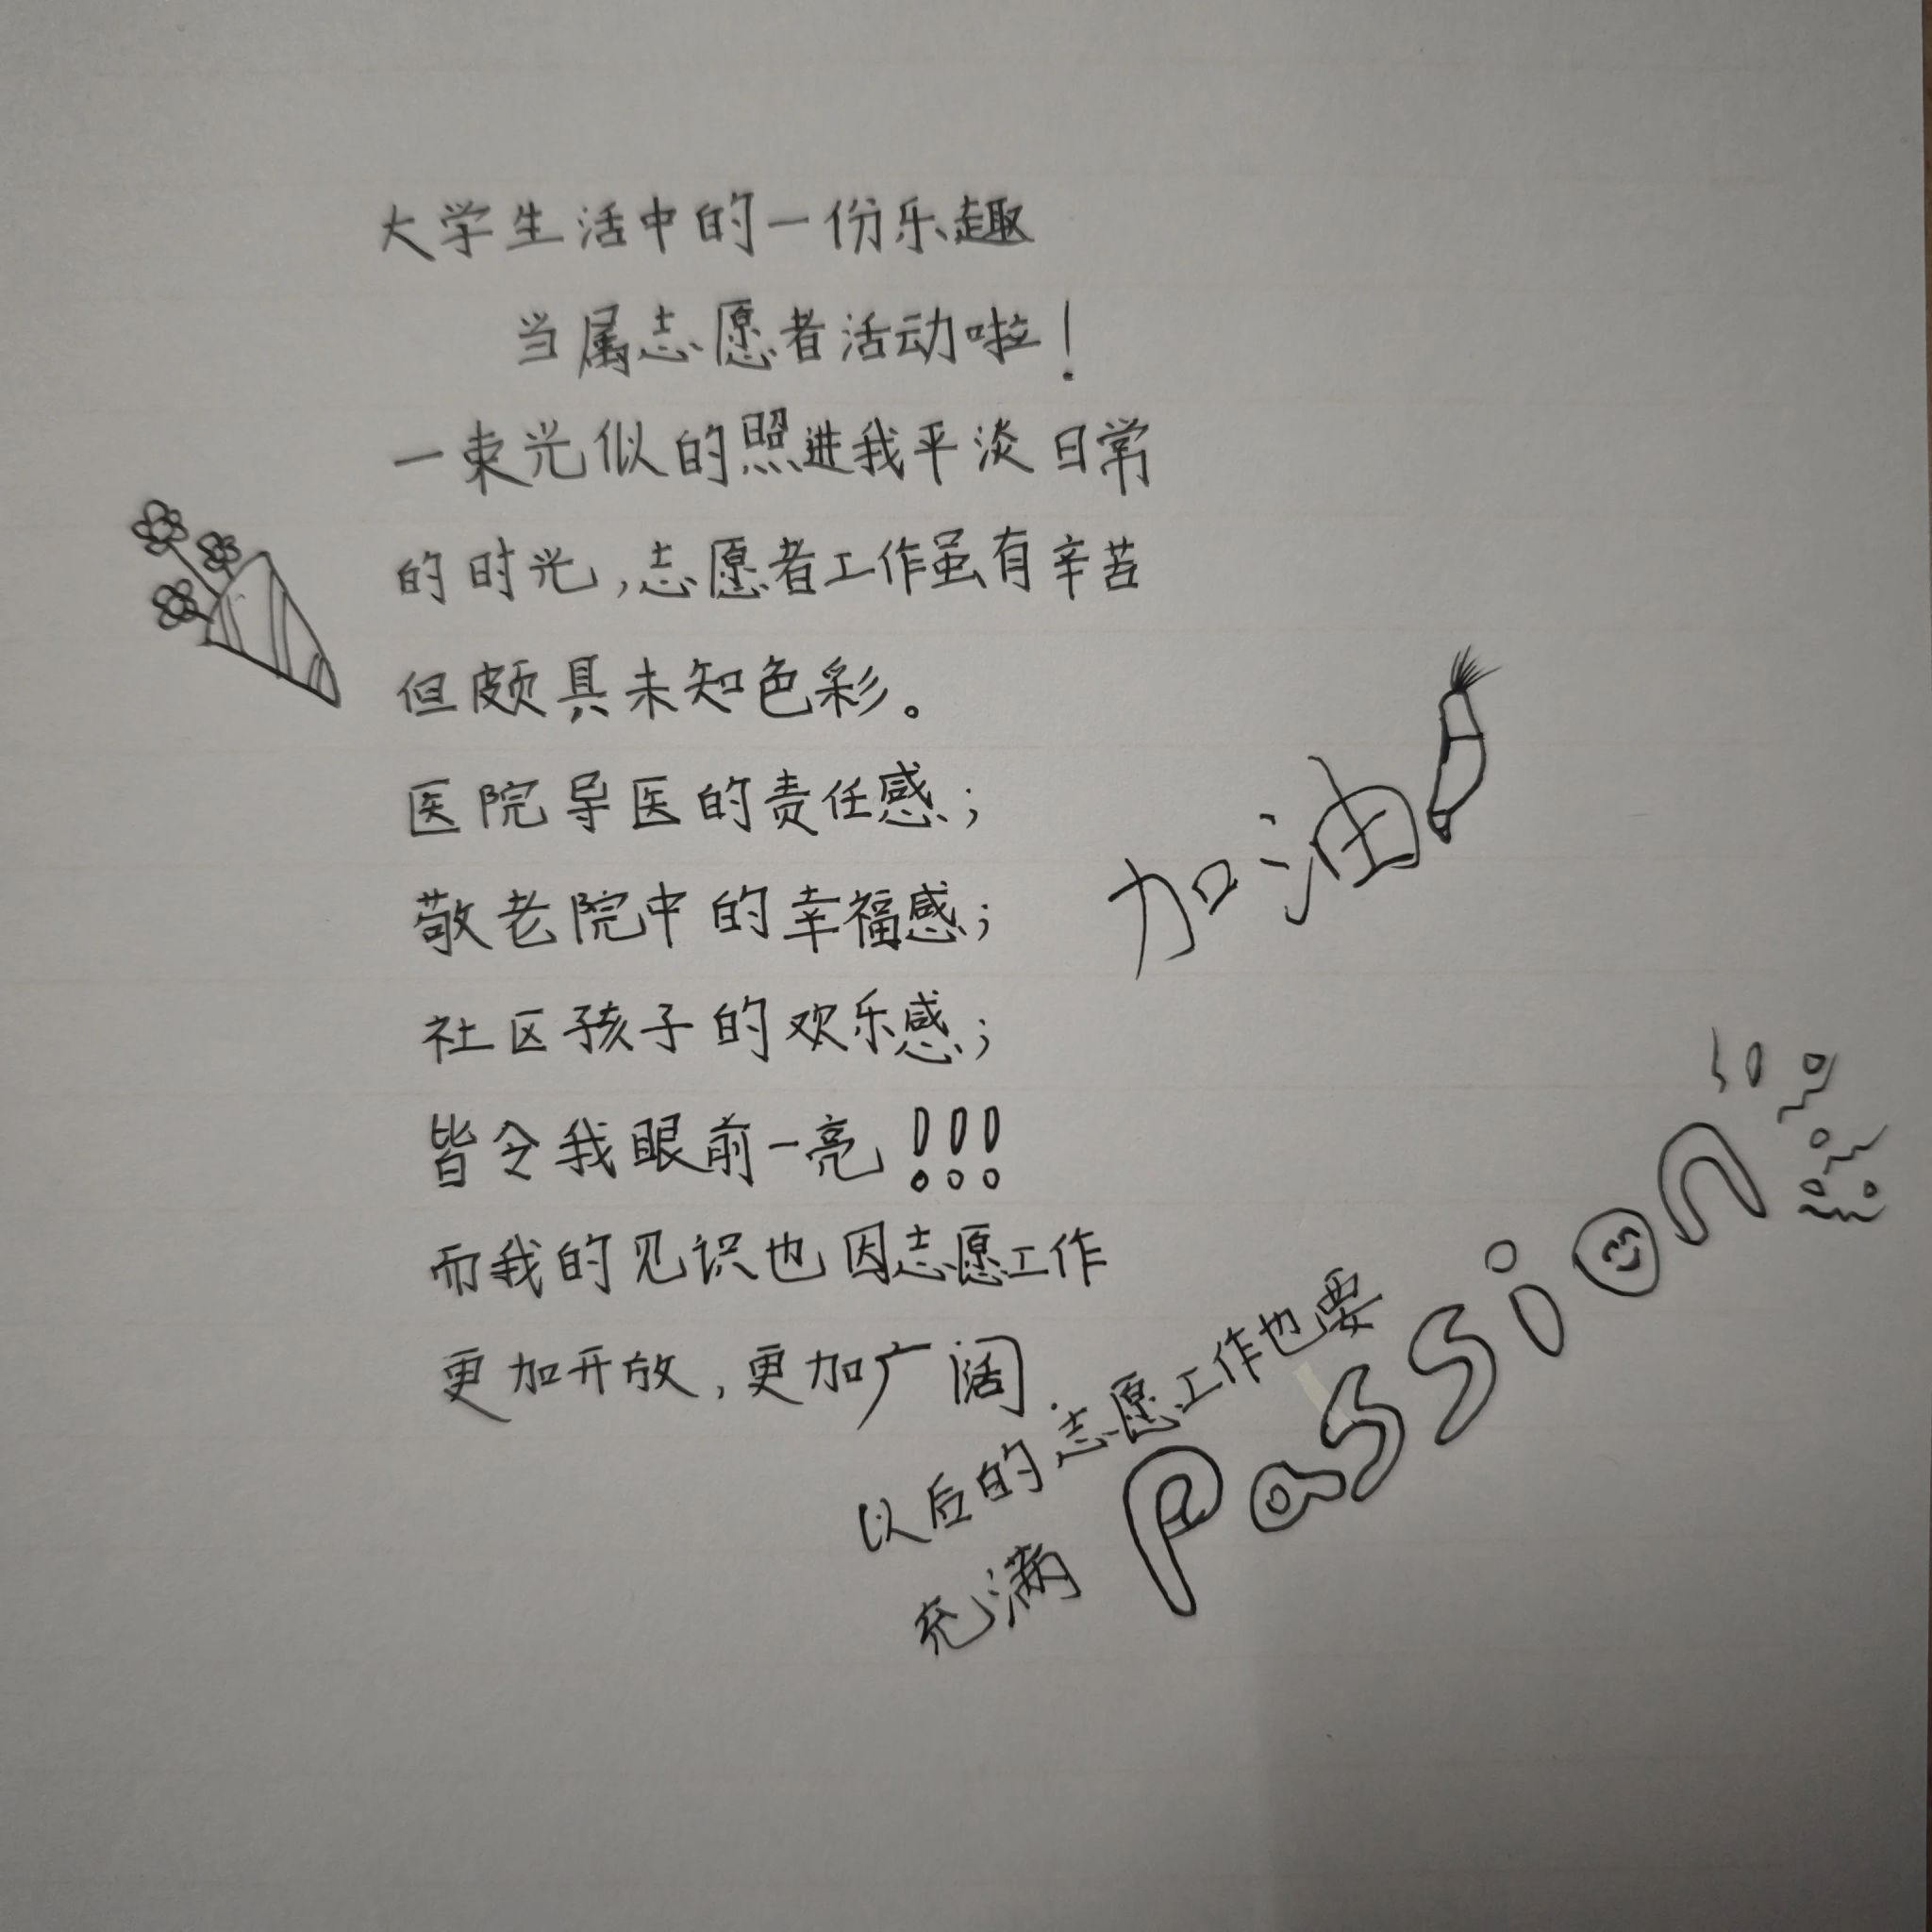 大学生活中的一份乐趣
当属志愿者活动啦！
一束光似的照进我平淡日常
的时光，志愿者工作虽有辛苦
但颇具未知色彩。
医院导医的责任感；
敬老院中的幸福感；
社区孩子的欢乐感；
皆令我眼前一亮！！！
而我的见识也因志愿工作
更加开放，更加广阔.
加油！
以后的志愿工作也要
充满 Passion